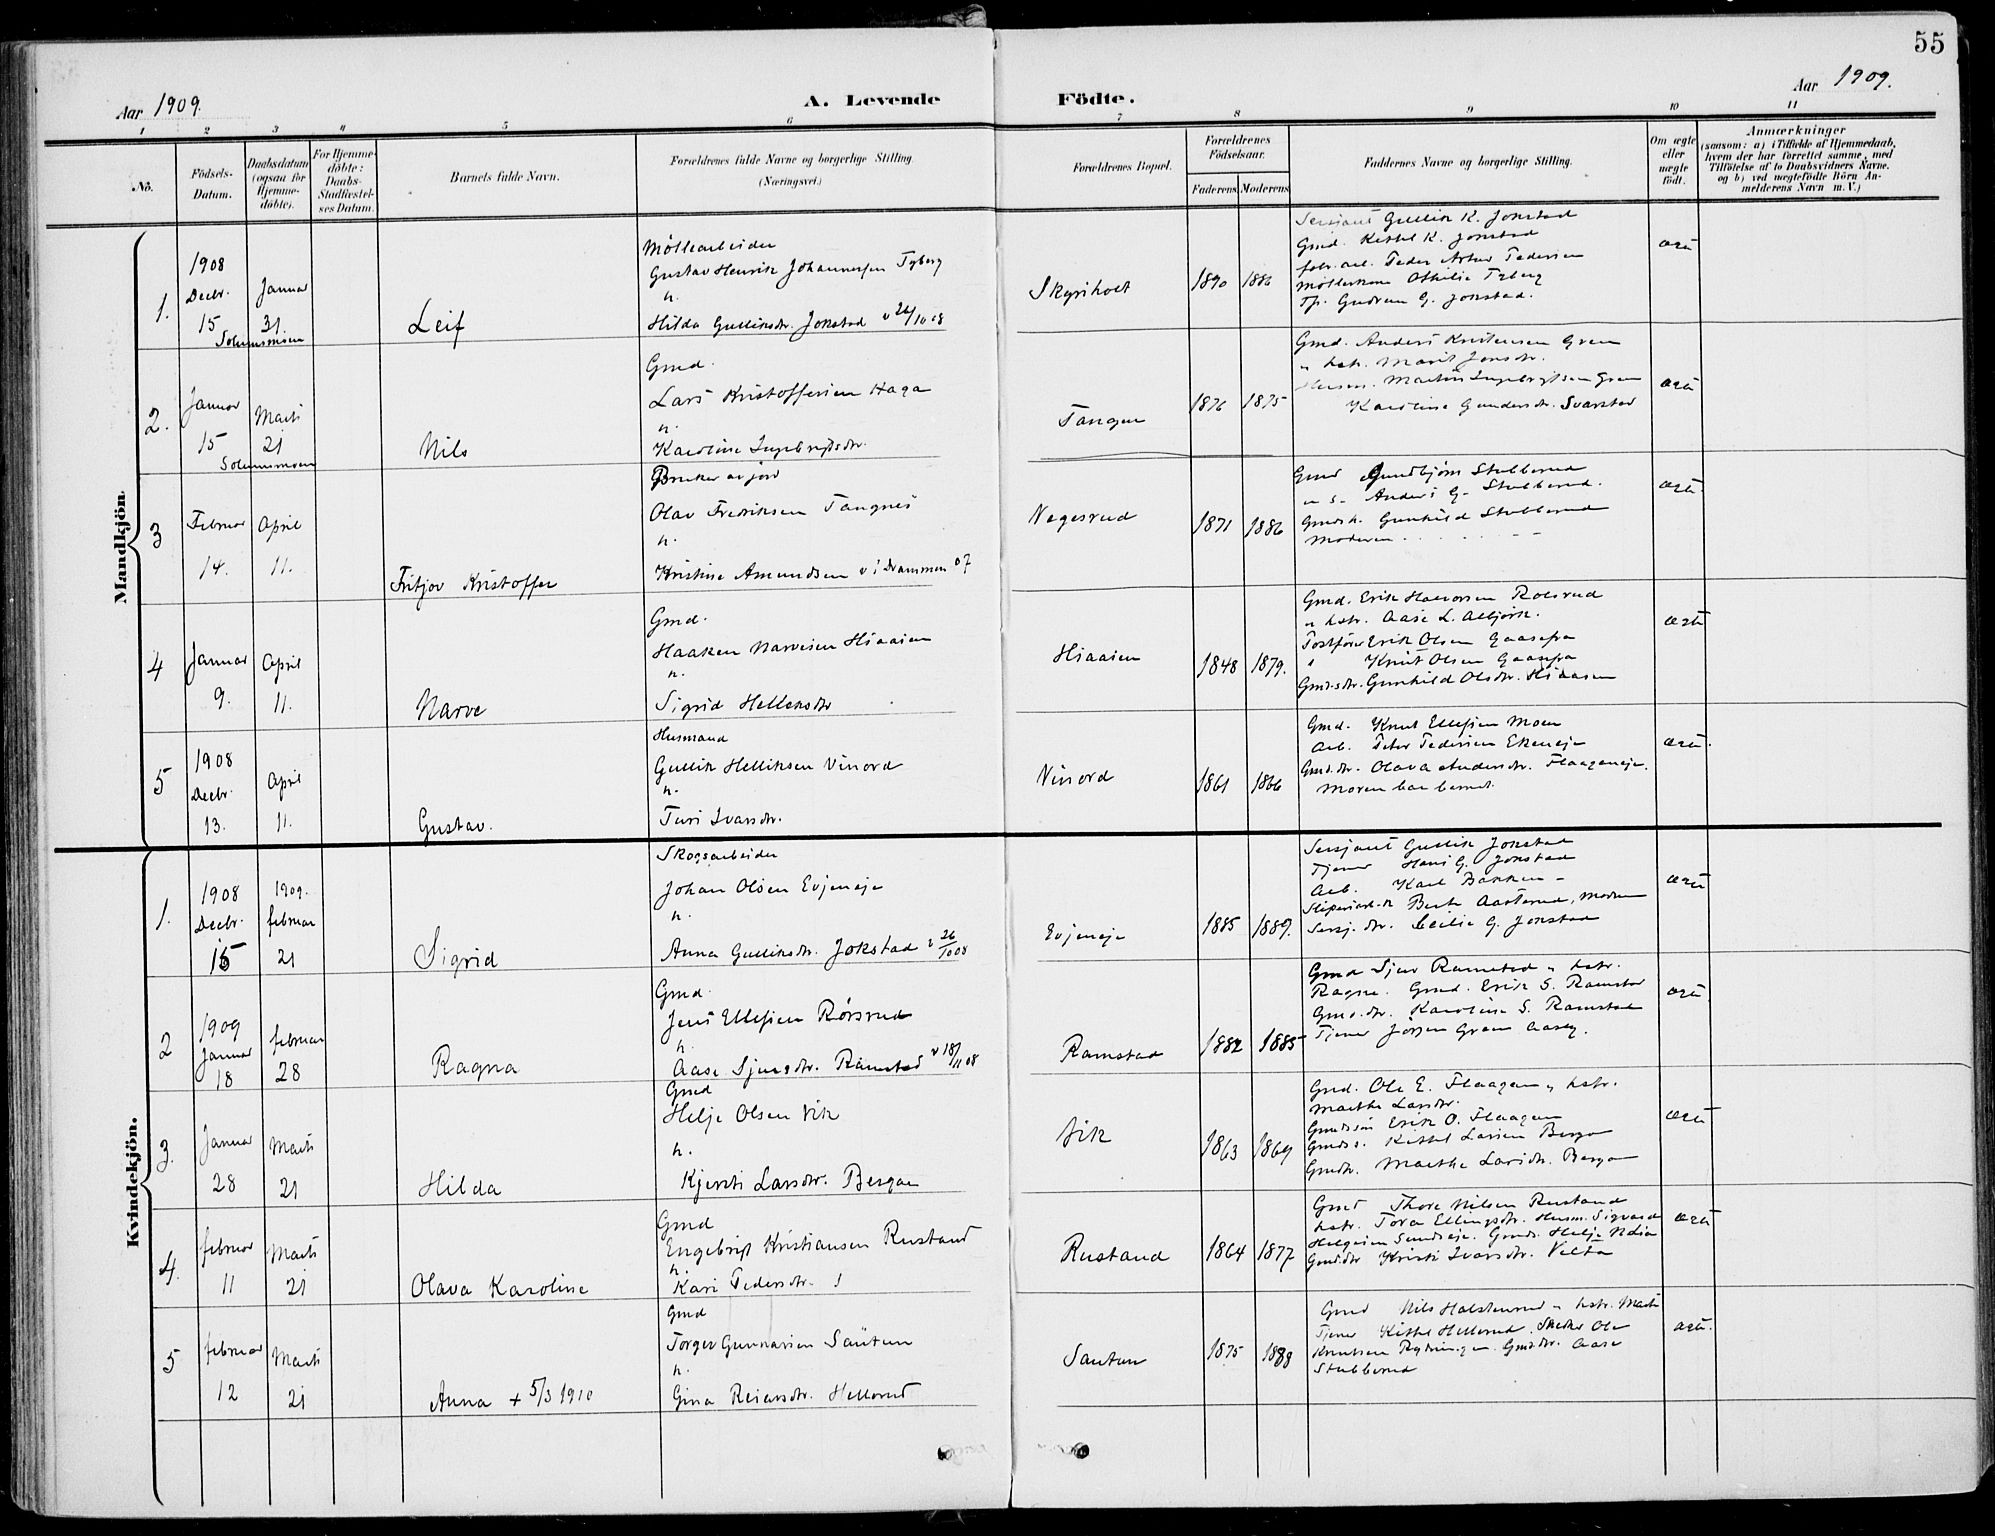 55
Aar 1909.
A. Levende
Födte.
Aar 1909.
1 2 3 4 5 6 7 8 9 10 11
No.
Födsels-
Datum.
Daabsdatum
(ogsaa for
Hjemme-
döbte).
For Hjemme-
döbte:
Daabs-
Stadfæstel-
ses Datum.
Barnets fulde Navn.
Forældrenes fulde Navne og borgerlige Stilling.
(Næringsvei.)
Forældrenes Bopæl.
Forældrenes
Födselsaar.
Faderens
Moderens
Faddernes Navne og borgerlige Stilling.
Om ægte
eller
uægte
födt.
Anmærkninger
(saasom: a) i Tilfælde af Hjemmedaab,
hvem der har forrettet samme, med
Tilföielse af to Daabsvidners Navne.
og b) ved uægtefödte Börn An-
melderens Navn m. V.)
Mandkjön.
1.
1908
Decbr.
15
Januar
31.
Leif
Möllearbeider
Gustav Henrik Johannesen Tyberg
h.
Hilda Gulliksdr. Jokstad
1890
1886
Sersjant Gullik K. Jokstad
Gmd. Kittel K. Jokstad
fabr. arb. Peder Artur Pedersen
Othilie Tyberg
Tp. Gudrun G. Jokstad.
2.
Januar
15
Marts
21
Nils
Gmd.
Lars Kristoffersen Haga
h.
Karoline Ingebrigtsdr.
Tangen
1876
1875
Gmd. Anders Kristensen Gren
h hstr. Marit Jonsdr.
Karoline Gundersdr. Svarstad
3
Februar
14.
April
11.
Fritjov Kristoffer
Bruker av jord
Olav Fredriksen Tangnes
h.
Kristine Amundsen v i Drammen 07
Nagesrud
1871
1886
Gmd Gundbjörn Stubberud
h s. Anders G. Stubberud.
Gmdsk. Gunhild Stubberud
Moderen
4
Januar
9.
April
11.
Narve
Gmd.
Haaken Narvesen Hiaasen
h.
Sigrid Helleksdr
Hiaasen
1848
1879.
Gmd. Erik Halvorsen Rolsrud
h hstr. Aase L. Albjörk.
Erik Olsen Gaasefra
Knut Olsen Gaasefra
Gmdsdr. Gunhild Olsdr. Hiaasen
5
1908
Decbr.
13.
April
11.
Gustav.
Husmand
Gullik Helliksen Vinord
h.
Turi Ivarsdr.
Vinord
1861
1866
Gmd. Knut Ellefsen Moen
Arb. Peter Pedersen Ekeneje
Gmd.dr. Olava Andersdr. Flaageneje.
Moren bar barnet.
Kvindekjön.
1.
1908
Decbr.
15
1909.
februar
21
Sigrid
Skogsarbeider
Johan Olsen Evjeneje
h.
Anna Gulliksdr. Jokstad v 26/10 08
Evjeneje
1885
1889.
Sersjant Gullik Jokstad
Tjener Hans G. Jokstad
Arb. Karl Bakken
Sersj. dr. Cecilie G. Jokstad
2
1909
Januar
18
februar
28
Ragna
Gmd.
Jens Ellefsen Rörsrud
h.
Aase Sjursdr. Ramstad v 18/11 08
Ramstad
1882
1885
Gmd Sjur Ramstad h hstr.
Ragne. Gmd. Erik S. Ramstad
Gmd.dr. Karoline S. Ramstad
Tjener Jörgen Gren Aasly.
3.
Januar
28
Marts
21
Hilda
Gmd
Helje Olsen Vik
h.
Kjersti Larsdr. Bergan
Vik
1863
1869
Gmd. Ole E. Flaagan h hstr.
Marthe Larsdr.
Gmdssön Erik O. Flaagan
Gmds s. Kittel Larsen Bergan
Gmdr. Marthe Larsdr. Bergan
4.
februar
11
Marts
21
Olava Karoline
Gmd
Engebrigt Kristiansen Rustand
h.
Kari Pedersdr.
Rustand
1864
1877
Gmd Thore Nilsen Rustand
hstr. Tora Ellingsdr. Husm. Sigvard
Gmd.dr Kristi Ivarsdr. Velta
5
februar
12
Marts
21
Anna + 5/3 1910
Gmd
Torger Gunnarsen Sautun
h.
Gina Reiarsdr. Hellerud
Sautun
1875
1888
Gmd Nils Halstenrud h hstr. Marte
Tjener Kittel Hellerud. Ole
Knutsen Rytningen Gmdsdr. Aase
Stubberud